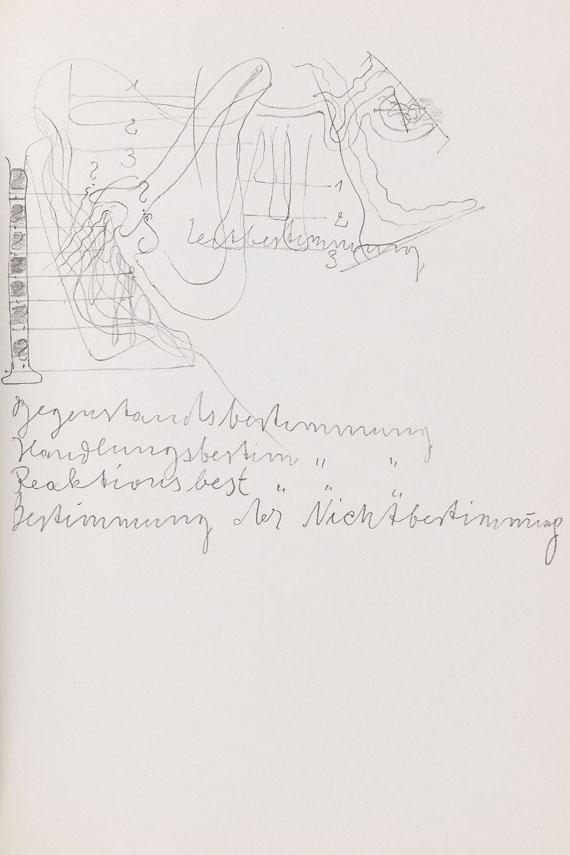 1
2
3
?
?
?
1
2
Zeitbestimmung
3
Gegenstandsbestimmung
Handlungsbestim " "
Reaktionsbest " " "
Bestimmung der Nichtbestimmung